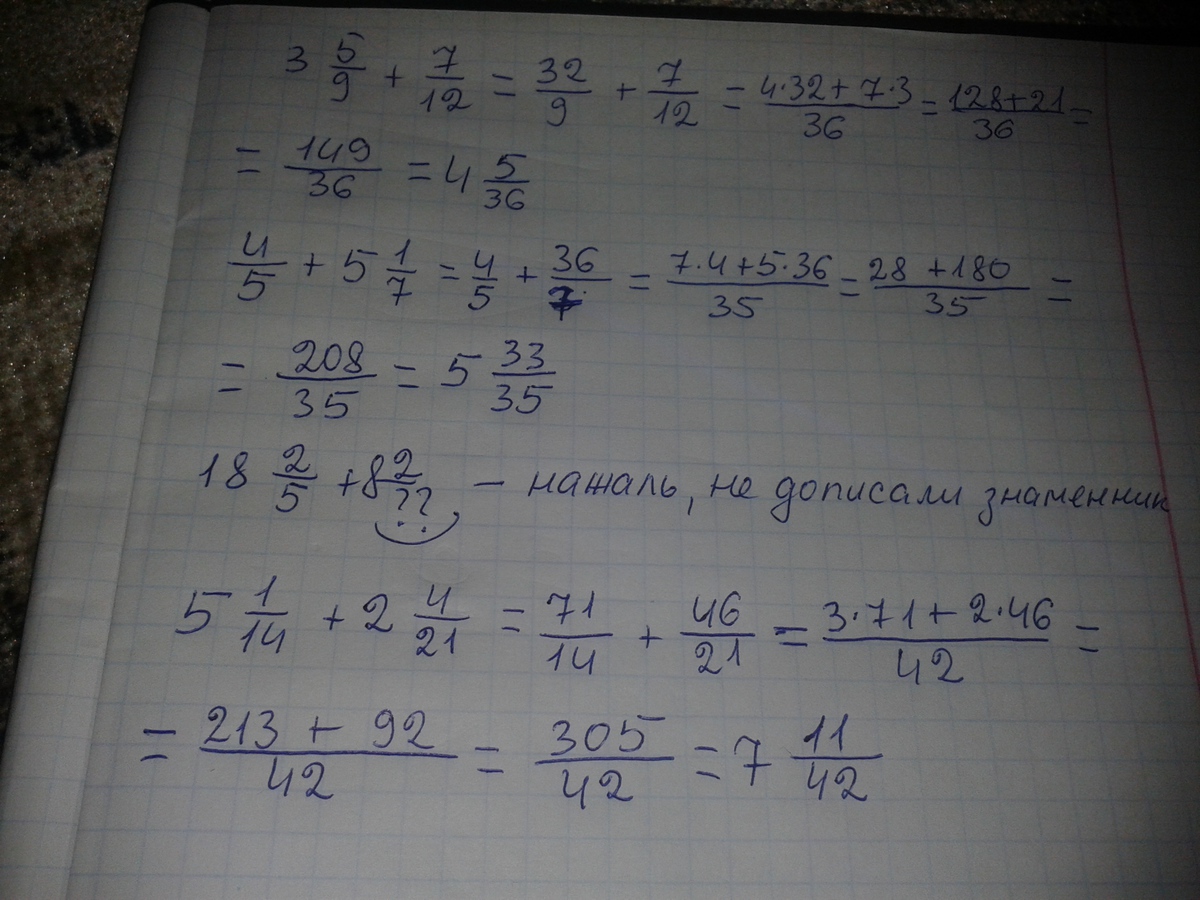 3 5/9 + 7/12 = 32/9 + 7/12 = (4·32+7·3)/36 = (128+21)/36 =
= 149/36 = 4 5/36
4/5 + 5 1/7 = 4/5 + 36/7 = (7·4+5·36)/35 = (28+180)/35 =
= 208/35 = 5 33/35
18 2/5 + 8 2/?? – нажаль, не дописали знаменник
5 1/14 + 2 4/21 = 71/14 + 46/21 = (3·71+2·46)/42 =
= (213+92)/42 = 305/42 = 7 11/42